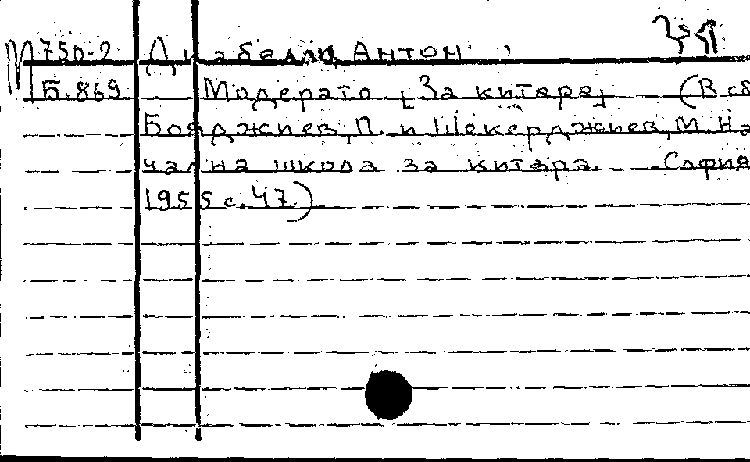 М 750-2 Диабелли Антон
Б.869 Модерато [За китара] (В сб
Бояджиев, П. и Шекерджиев, М. На
чална школа за китара. София
1955 с. 47)